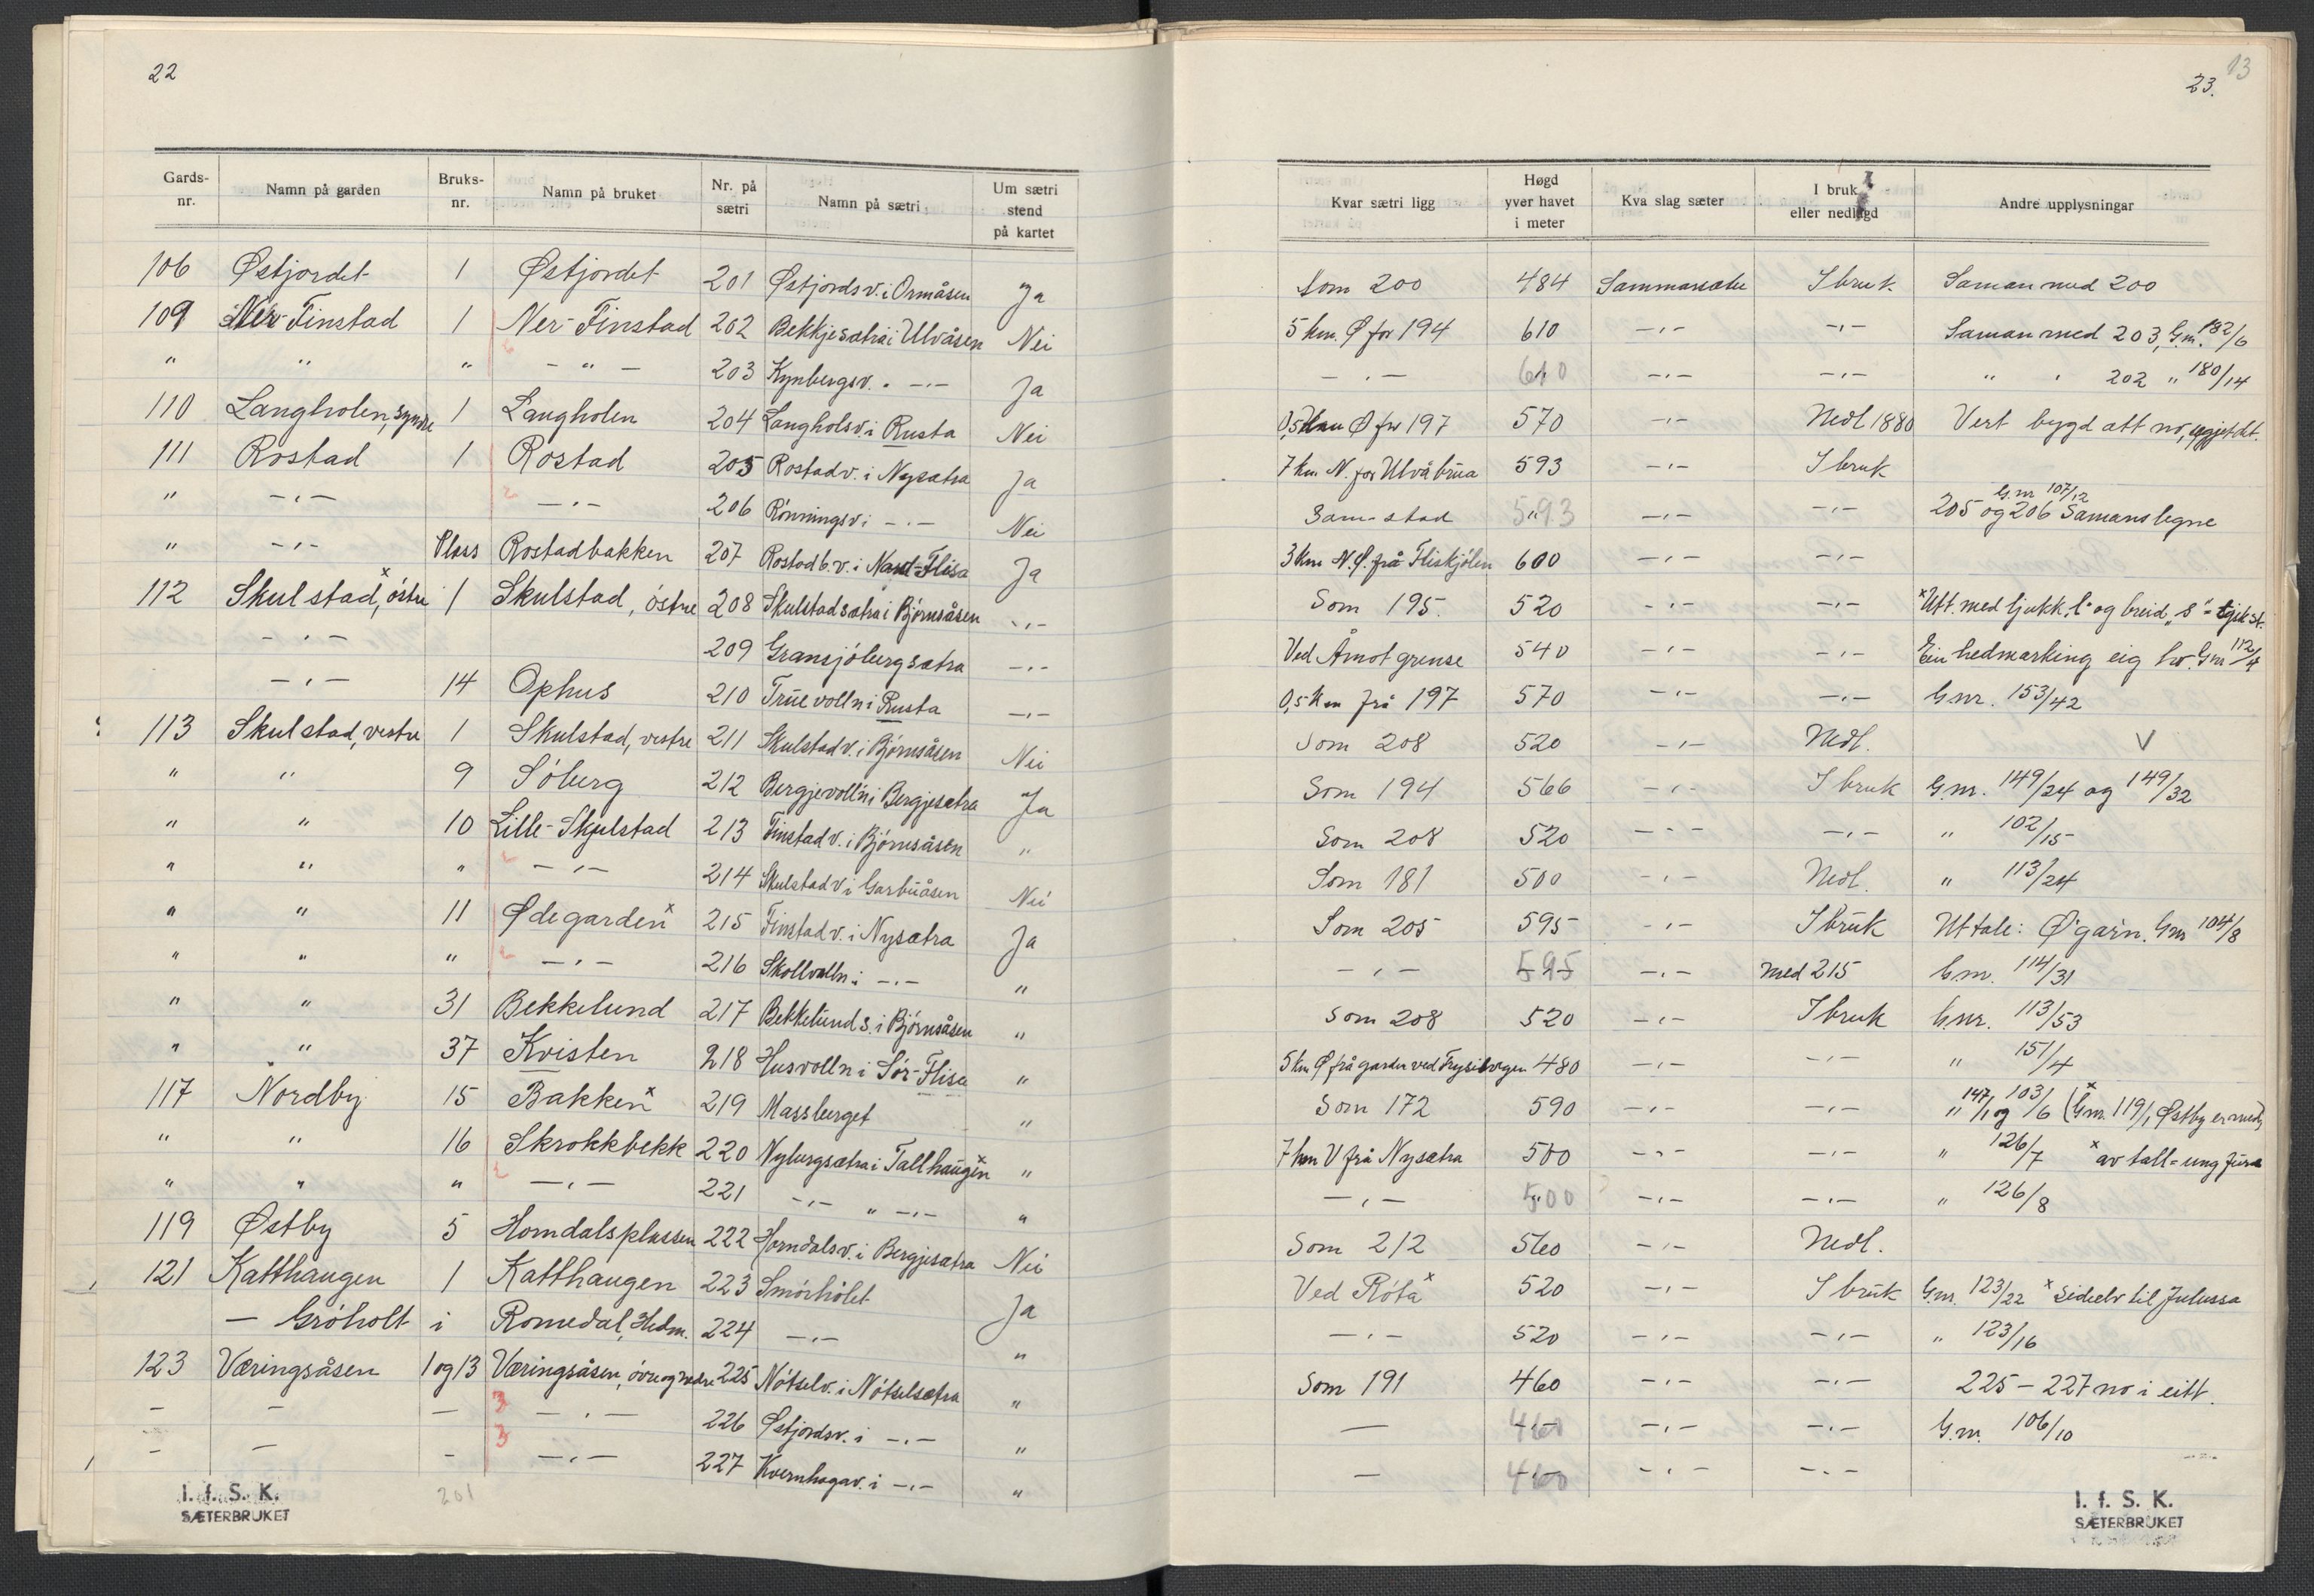 22
Gards-nr. Namn på garden Bruks-nr. Namn på bruket Nr. på sætri Namn på sætri Um sætri stend på kartet
106 Østjordet 1 Østjordet 201 Østjordsv. i Ormåsen Ja
109 Ner-Finstad 1 Ner-Finstad 202 Bekkjesætra i Ulvåsen Nei
" " " - " - 203 Kynbergsv. " -,- Ja
110 Langholen, syndre 1 Langholen 204 Langholsv. i Rusta Nei
111 Rostad 1 Rostad 205 Rostadv. i Nysætra Ja
" -,- -,- 206 Rönningsv. i -,- Nei
" -,- Plass Rostadbakken 207 Rostadb.v. i Nord-Flisa Ja
112 Skulstad,x östre 1 Skulstad, östre 208 Skulstadsætra i Björnsåsen -,-
-,- 209 Gransjöbergsætra -,-
-,- 14 Ophus 210 Truevolln i Rusta -,-
113 Skulstad, vestre 1 Skulstad, vestre 211 Skulstadv. i Björnsåsen Nei
" " 9 Söberg 212 Bergjevolln i Bergjesætra Ja
" " 10 Lille-Skulstad 213 Finstadv. i Björnsåsen "
" " " -,- 214 Skulstadv. i Garbuåsen Nei
" " 11 Ødegardenx 215 Finstadv. i Nysætra Ja
" " " -,- 216 Skollvolln i -,- "
" " 31 Bekkelund 217 Bekkelunds. i Björnsåsen "
" " 37 Kvisten 218 Husvolln i Sör-Flisa "
117 Nordby 15 Bakkenx 219 Massberget "
" " 16 Skrokkbekk 220 Nybergsætra i Tallhaugenx "
" " " -,- 221 -,- " -,- "
119 Østby 5 Horndalsplassen 222 Horndalsv. i Bergjesætra Nei
121 Katthaugen 1 Katthaugen 223 Smörhölet Ja
- Gröholt i Romedal, Hedm. 224 -,- "
123 Væringsåsen 1 og 13 Væringsåsen, övre og nedre 225 Nötselv. i Nötselsætra "
- - - 3 -,- 226 Østjordsv. i -,- "
- - - 3 -,- 227 Kvernhagav. i -,- "
I. f. S. K.
SÆTERBRUKET
201
13
23.
Kvar sætri ligg Høgd yver havet i meter Kva slag sæter I bruk eller nedlagd Andre upplysningar
Som 200 484 Sammarsæter I bruk Saman med 200
5 km. Ø for 194 610 -,- -,- Saman med 203, G.nr. 182/6
-,- 610 -,- -,- " " 202 " 180/14
0,5 km Ø for 197 570 -,- Nedl 1880 Vert bygd att no, uggjet det.
7 km N. for Ulvåbrua 593 -,- I bruk
Sam-stad 593 -,- -,- 205 og 206 Samanslegne G.nr 107/12
3 km N.Ø. frå Fliskjölen 600 -,- -,-
Som 195. 520 -,- -,- xUtt. med tjukk "l" og breid "s"
Ved Åmot grense 540 -,- -,- Ein hedmarking eig ho. Gnr 112/4
0,5 km frå 197 570 -,- -,- Gnr. 153/42
Som 208 520 -,- Nedl. V
Som 194 566 -,- I bruk G.nr. 149/24 og 149/32
Som 208 520 -,- -,- " 102/15
Som 181 500 -,- Nedl. " 113/24
Som 205 595 -,- I bruk Uttale: Ø'garn. Gnr 104/8
-,- 595 -,- med 215 G.nr. 114/31
Som 208 520 -,- I bruk Gnr. 113/53
5 km Ø frå garden ved Trysilvegen 480 -,- -,- " 151/4
Som 172 590 -,- -,- " 147/1 og 103/6 (xGnr. 119/1, Østby er med)
7 km V frå Nysætra 500 -,- -,- " 126/7 x av tall = ung furu
-,- 500 -,- -,- " 126/8
Som 212 560 -,- Nedl.
Ved Rötax 520 -,- I bruk G.nr. 123/22 x Sideelv til Julussa
-,- 520 -,- -,- " 123/16
Som 191 460 -,- -,- 225 - 227 no i eitt.
— 460 -,- -,- G.nr. 106/10
— 460 -,- -,-
I. f. S. K.
SÆTERBRUKET